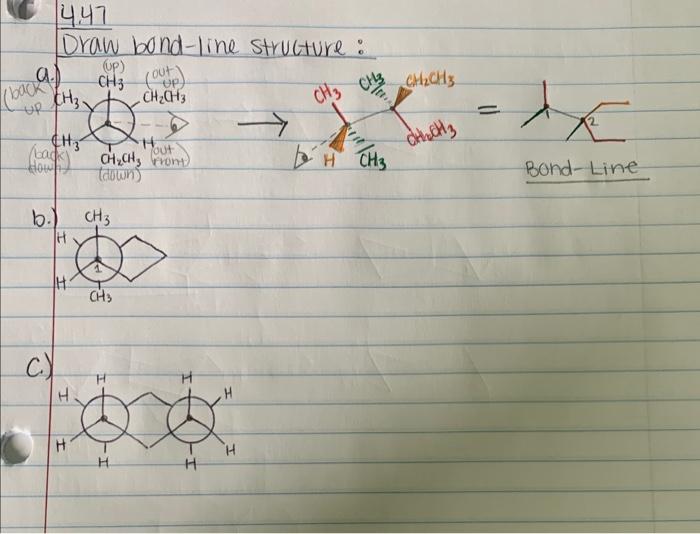 4.47
Draw bond-line structure :
a.)
(up)
CH3
(out up)
(back up
CH3
CH2CH3
CH3
H
(back down)
CH2CH3
(out front)
(down)
CH3
CH3
CH2CH3
CH2CH3
H
CH3
=
1
2
Bond-Line
b.)
CH3
H
1
H
CH3
C.)
H
H
H
H
H
H
H
H